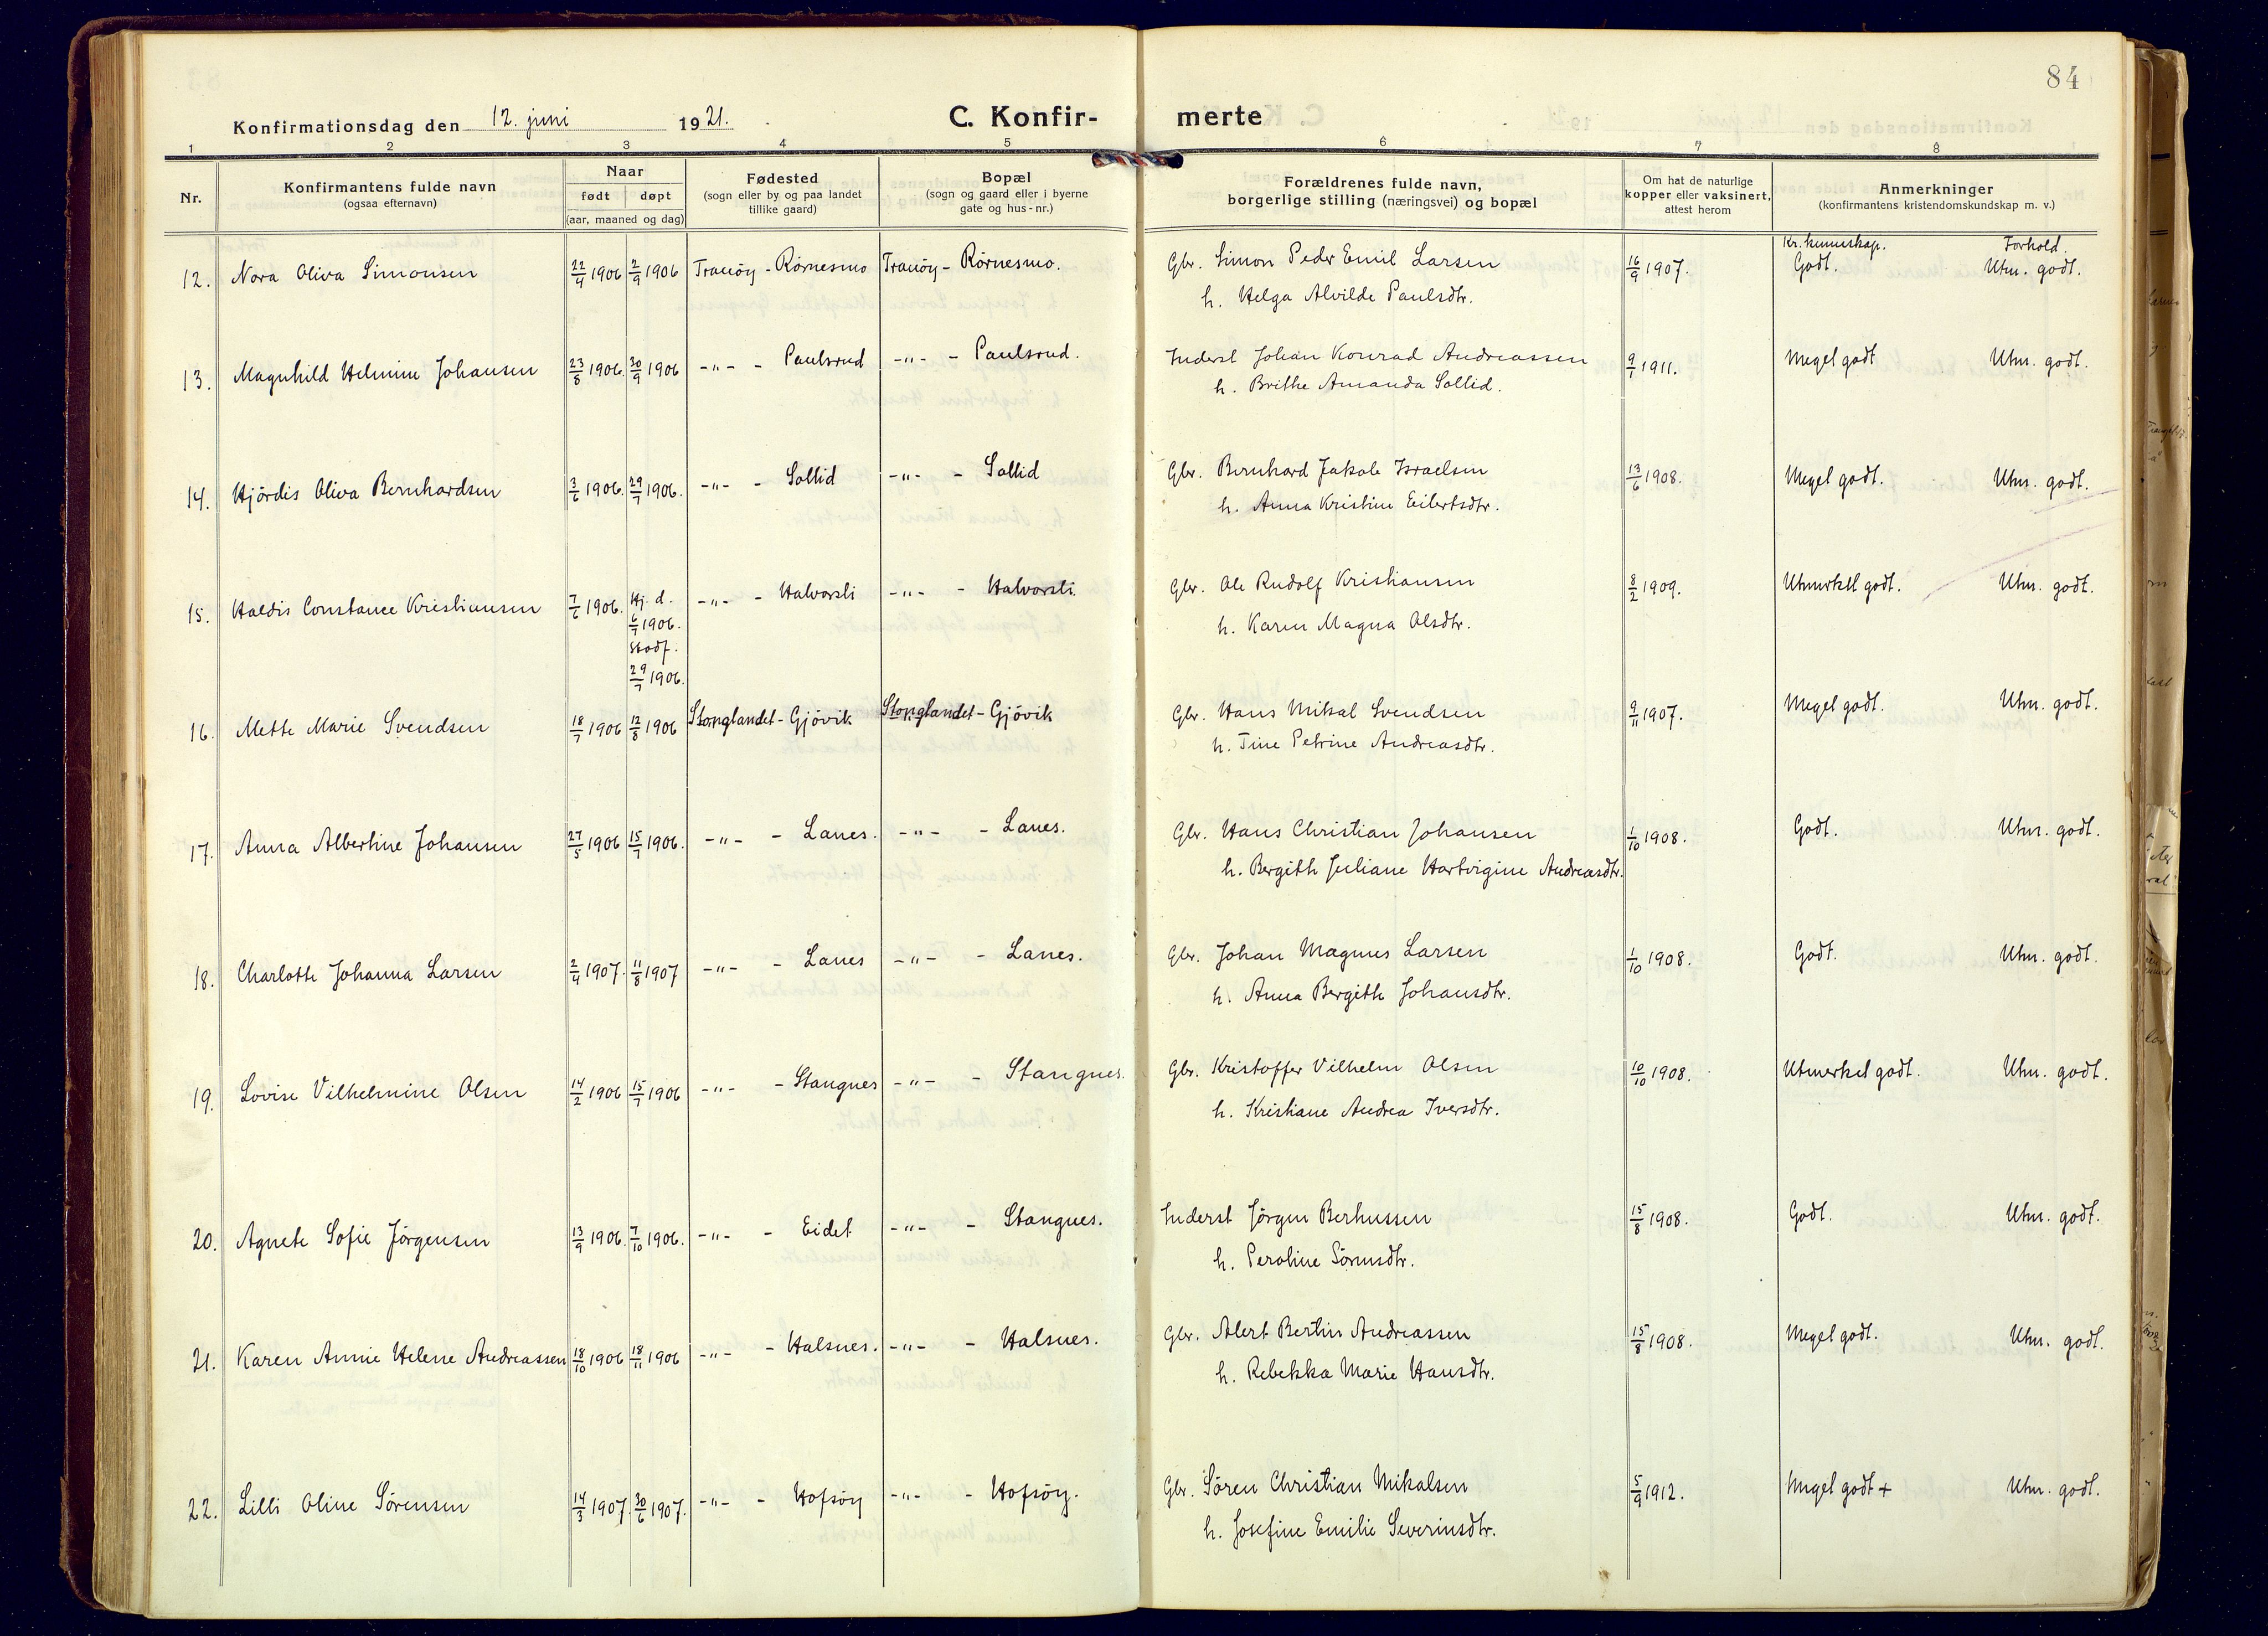 84
Konfirmationsdag den 12. juni 1921.
C. Konfir- merte
1 2 3 4 5 6 7 8
Nr.
Konfirmantens fulde navn
(ogsaa efternavn)
Naar
født døpt
(aar, maaned og dag)
Fødested
(sogn eller by og paa landet
tillike gaard)
Bopæl
(sogn og gaard eller i byerne
gate og hus-nr.)
Forældrenes fulde navn,
borgerlige stilling (næringsvei) og bopæl
Om hat de naturlige
kopper eller vaksinert,
attest herom
Anmerkninger
(konfirmantens kristendomskundskap m. v.)
Kr. kunnskap. Forhold.
12. Nora Oliva Simonsen 22/4 1906 2/9 1906 Tranöy - Rörnesmo Tranöy - Rörnesmo. Gbr. Simon Peder Emil Larsen 16/9 1907. Godt. Utm. godt.
h. Helga Alvilde Paulsdtr.
13. Magnhild Helmine Johansen 23/8 1906. 30/9 1906 -"- - Paulsrud -"- - Paulsrud. Inderst Johan Konrad Andreassen 9/1 1911. Meget godt Utm. godt.
h. Brithe Amanda Sollid.
14. Hjördis Oliva Bernhardsen 3/6 1906. 29/7 1906. -"- - Sollid -"- - Sollid Gbr. Bernhard Jakob Israelsen 13/6 1908. Meget godt. Utm. godt.
h. Anna Kristine Eilertsdtr.
15. Haldis Constance Kristiansen 7/6 1906. Hj. d. -"- - Halvorsli -"- - Halvorsli. Gbr. Ole Rudolf Kristiansen 8/2 1909. Utmerket godt. Utm. godt.
6/7 1906. h. Karen Magna Olsdtr.
stadf.
29/7 1906.
16. Mette Marie Svendsen 18/7 1906 12/8 1906 Stonglandet - Gjövik Stonglandet - Gjövik Gbr. Hans Mikal Svendsen 9/11 1907. Meget godt. Utm. godt.
h. Tine Petrine Andreasdtr.
17. Anna Albertine Johansen 27/5 1906 15/7 1906. -"- - Lanes. -"- - Lanes. Gbr. Hans Christian Johansen 1/10 1908. Godt. Utm. godt.
h. Bergith Juliane Hartvigine Andreasdtr.
18. Charlotte Johanna Larsen 2/4 1907. 11/8 1907 -"- - Lanes -"- - Lanes. Gbr. Johan Magnus Larsen 1/10 1908. Godt. Utm. godt.
h. Anna Bergith Johansdtr.
19. Lovise Vilhelmine Olsen 14/2 1906 15/7 1906 -"- - Stangnes -"- - Stangnes. Gbr. Kristoffer Vilhelm Olsen 10/10 1908. Utmerket godt. Utm. godt.
h. Kristiane Andrea Iversdtr.
20. Agnete Sofie Jörgensen 13/9 1906. 7/10 1906. -"- - Eidet -"- - Stangnes. Inderst Jörgen Berhussen 15/8 1908. Godt. Utm. godt.
h. Peroline Sörensdtr.
21. Karen Annie Helene Andreassen 18/10 1906 18/11 1906 -"- - Halsnes. -"- - Halsnes. Gbr. Alert Bertin Andreassen 15/8 1908. Meget godt. Utm. godt.
h. Rebekka Marie Hansdtr.
22. Lilli Oline Sörensen 14/3 1907. 30/6 1907. -"- - Hofsöy -"- - Hofsöy. Gbr. Sören Christian Mikalsen 5/9 1912. Meget godt + Utm. godt.
h. Josefine Emilie Severinsdtr.